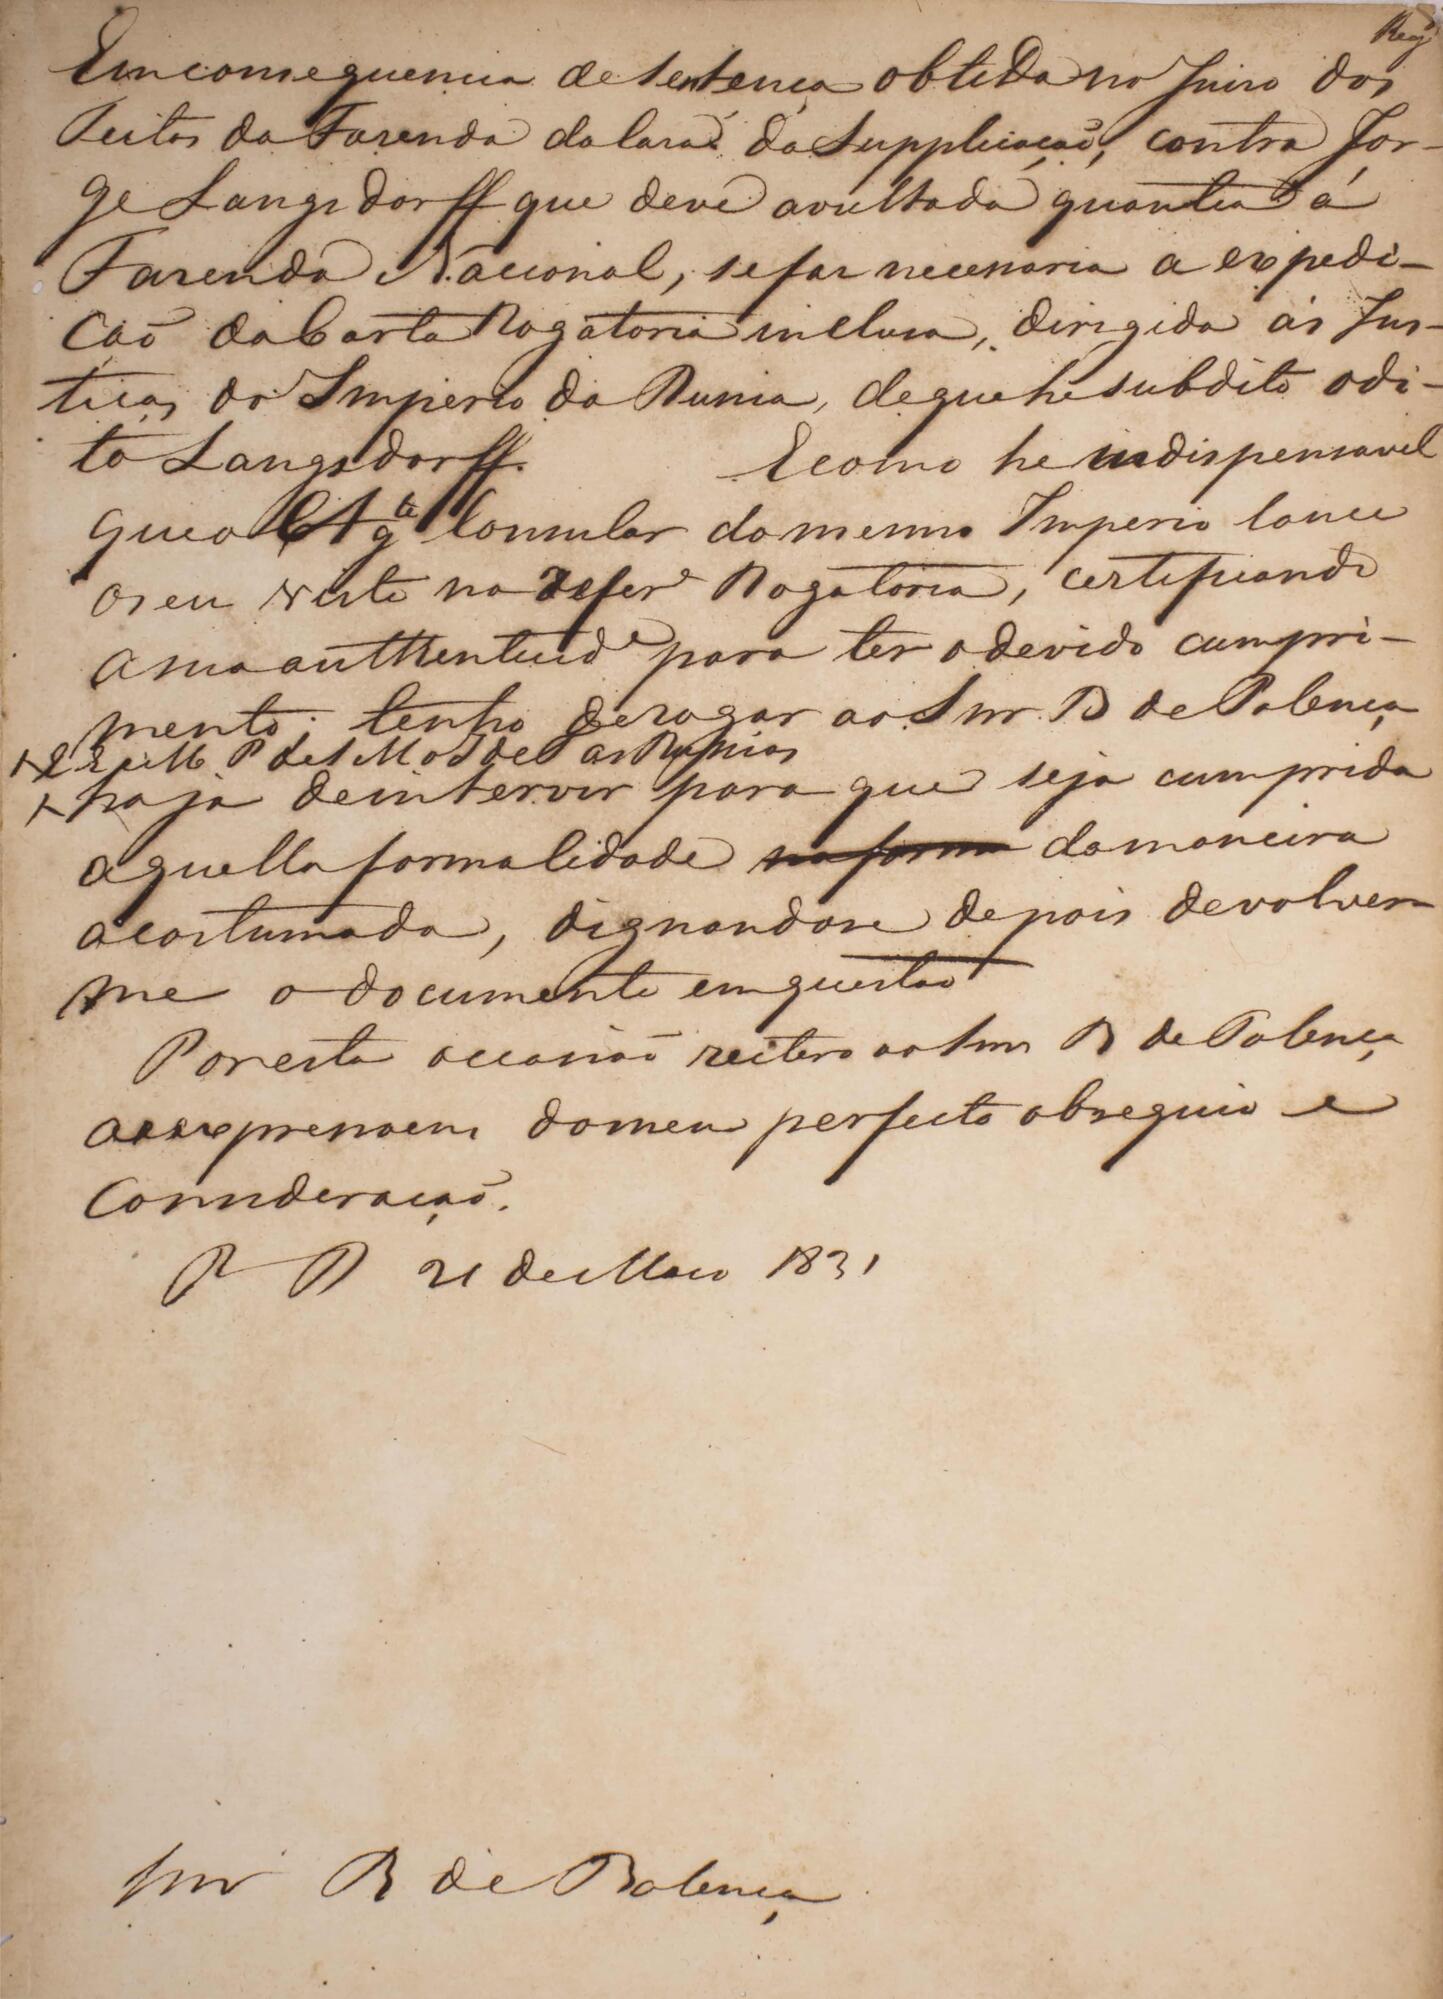 Reg
Em consequencia de sentença obtida no Juizo dos
Feitos da Fazenda da Caza da Supplicação, contra Jor-
ge Langsdorff que deve avultada quantia á
Fazenda Nacional, se faz necessaria a expedi-
ção da Carta Rogatoria inclusa, dirigida ás Jus-
tiças do Imperio da Russia, de que he subdito o di-
to Langsdorff. E como he indispensavel
que o Agte Consular do mesmo Imperio lance
o seu visto na refera Rogatoria, certificando
a sua authenticide para ter o devido cumpri-
mento; tenho de rogar ao Snr. B de Palença
de S M o de Russias
haja de intervir para que seja cumprida
aquella formalidade na forma da maneira
acostumada, dignandose depois devolver
me o documento em questão
Por esta occasião reitero ao Snr B de Palença
as expressoens do meu perfeito obsequio e
Consideração.
P P 21 de Maio 1831
Snr B de Palença